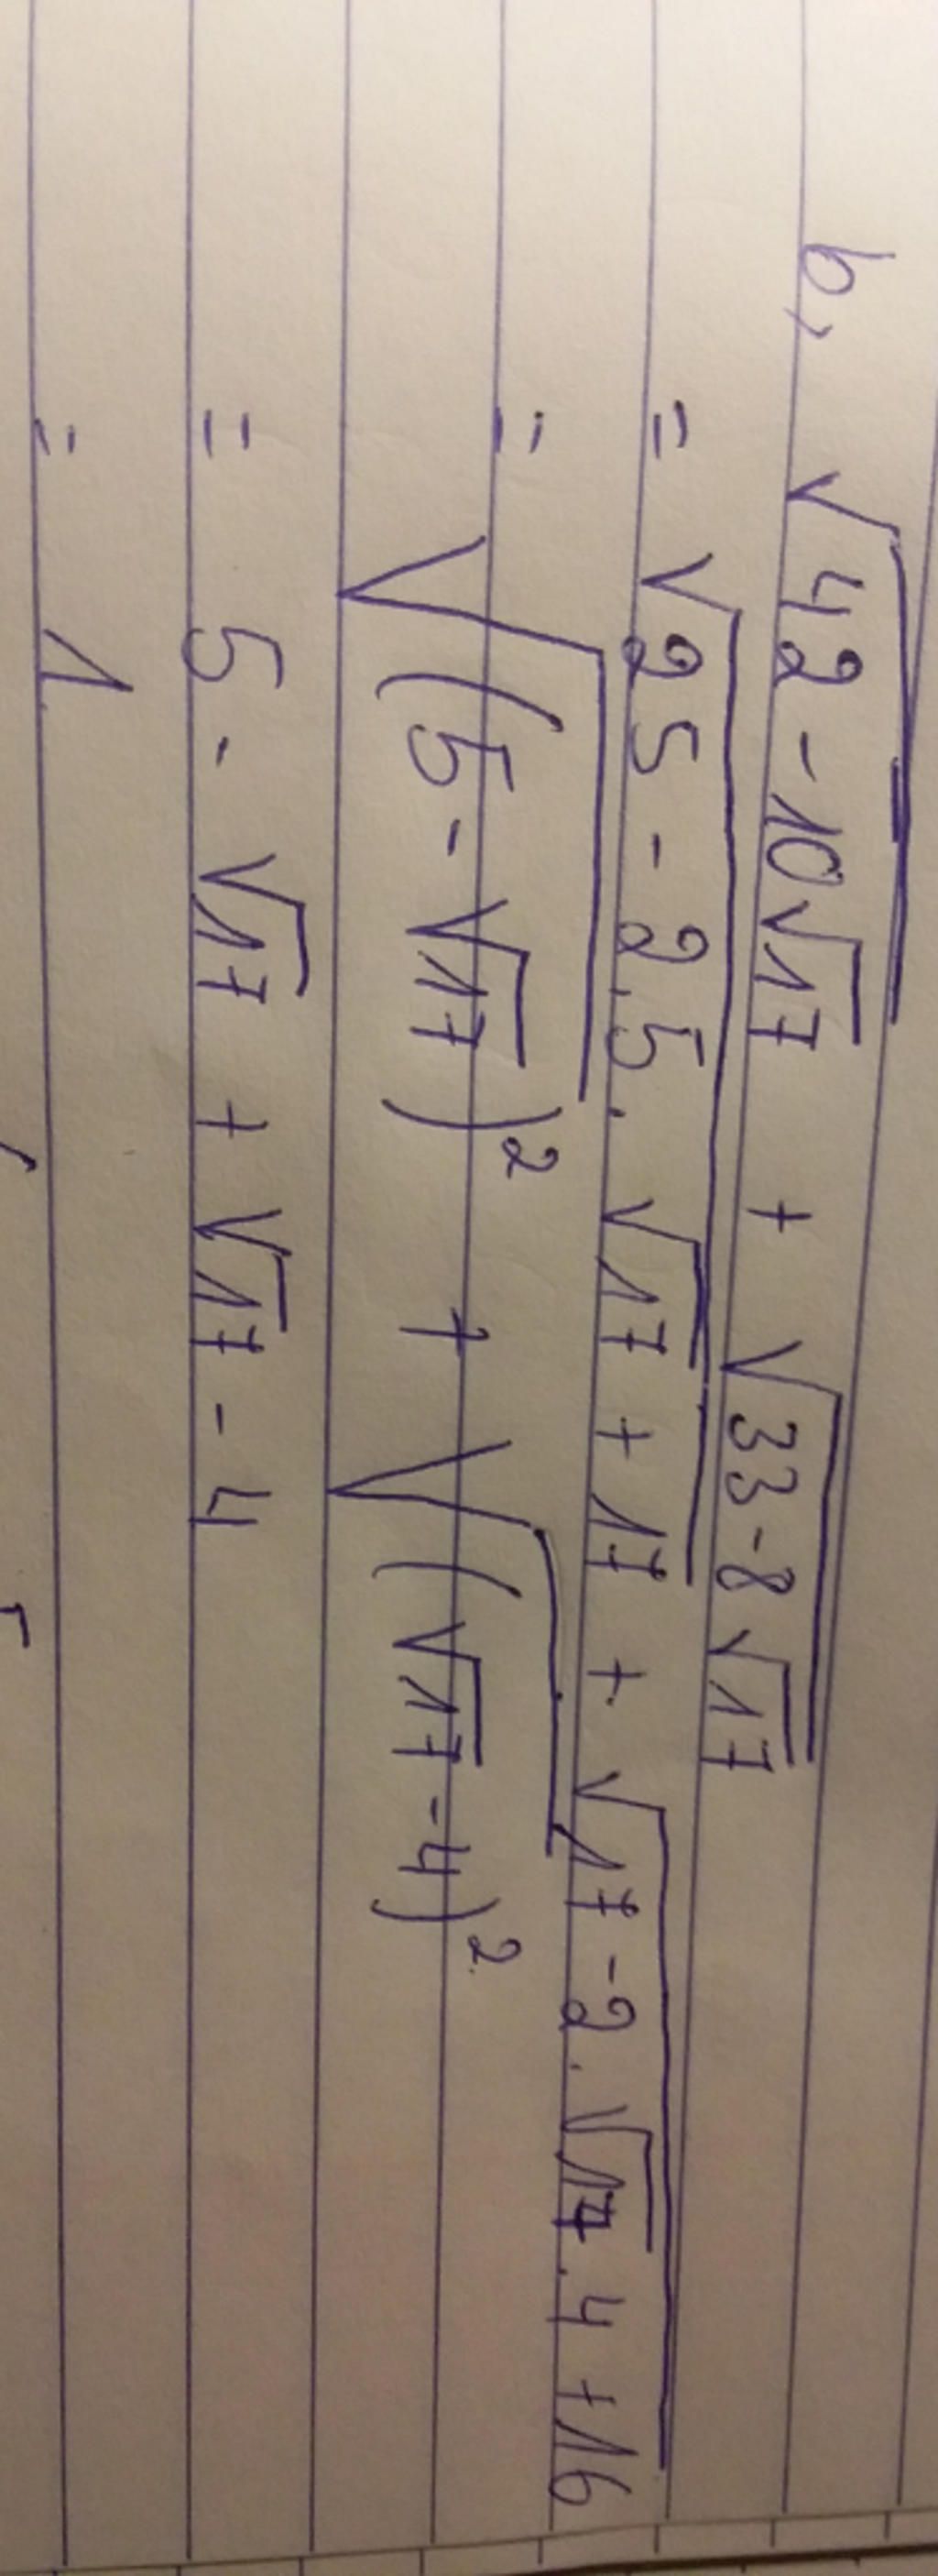 b, √(42 - 10√17) + √(33 - 8√17)
= √(25 - 2.5.√17 + 17) + √(17 - 2.√17.4 + 16)
= √((5 - √17)²) + √((√17 - 4)²)
= 5 - √17 + √17 - 4
= 1